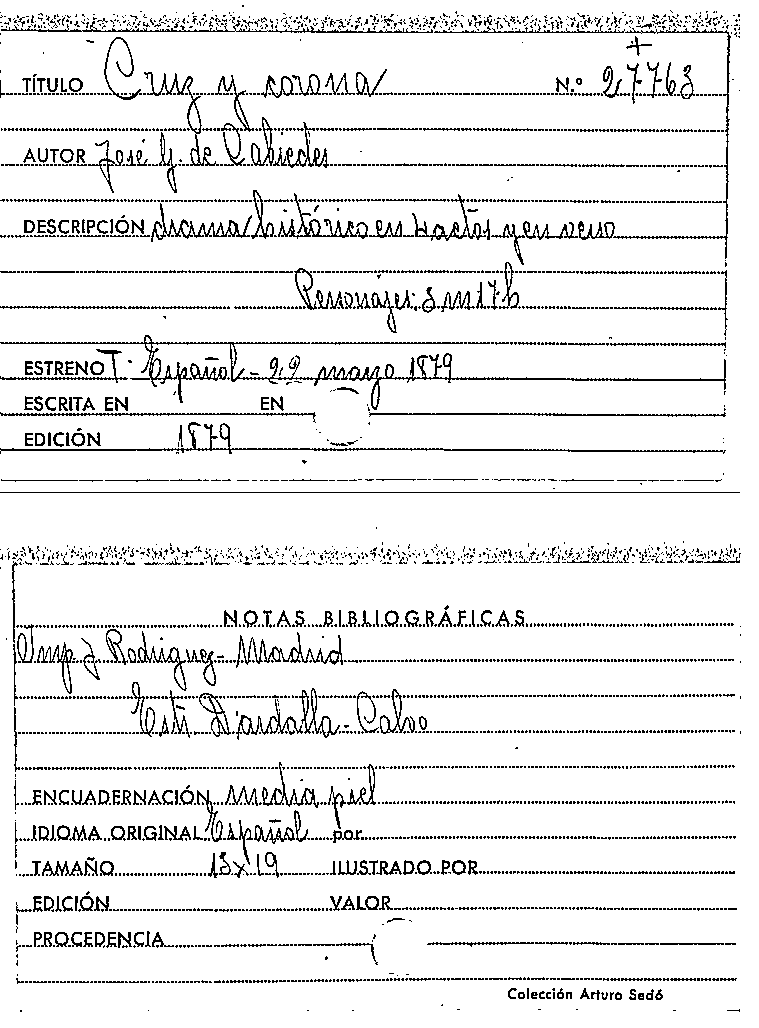 TÍTULO Cruz y corona N.º 27763
AUTOR José G. de Cabiedes
DESCRIPCIÓN drama histórico en 4 actos y en verso
Personajes: 3 m 17 h
ESTRENO T. Español - 22 marzo 1879
ESCRITA EN EN
EDICIÓN 1879
NOTAS BIBLIOGRÁFICAS
Imp J Rodriguez - Madrid
Estr. Dardalla - Calvo
ENCUADERNACIÓN media piel
IDIOMA ORIGINAL Español por
TAMAÑO 13 x 19 ILUSTRADO POR
EDICIÓN VALOR
PROCEDENCIA
Colección Arturo Sedó